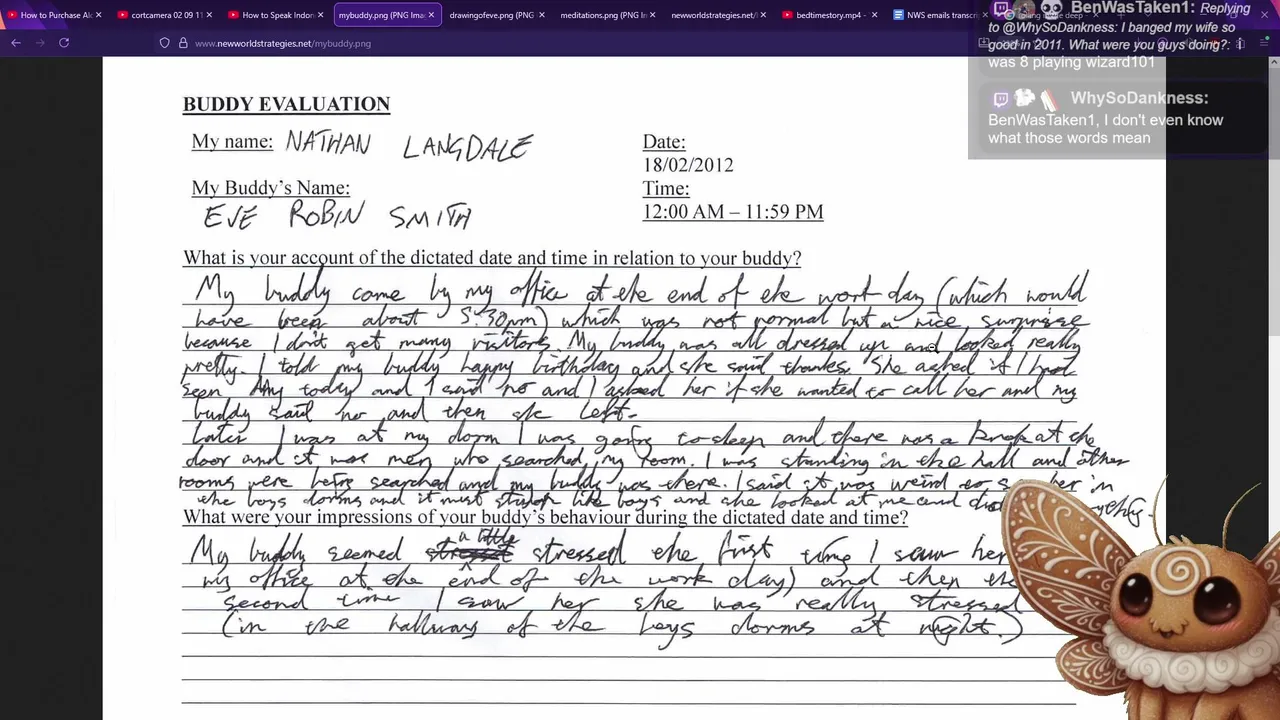 How to Purchase Al
cortcamera 02 09 11
How to Speak Indon
mybuddy.png (PNG Imag
drawingofeve.png (PNG
meditations.png (PNG In
newworldstrategies.net/
bedtimestory.mp4 -
NWS emails transcri
www.newworldstrategies.net/mybuddy.png
BenWasTaken1: Replying
to @WhySoDankness: I banged my wife so
good in 2011. What were you guys doing?:
was 8 playing wizard101
WhySoDankness:
BenWasTaken1, I don't even know
what those words mean
BUDDY EVALUATION
My name: NATHAN LANGDALE
Date:
18/02/2012
My Buddy's Name:
EVE ROBIN SMITH
Time:
12:00 AM – 11:59 PM
What is your account of the dictated date and time in relation to your buddy?
My buddy come by my office at the end of the work day (which would
have been about 5:30pm) which was not normal but a nice surprise
because I don't get many visitors. My buddy was all dressed up and looked really
pretty. I told my buddy happy birthday and she said thanks. She asked if I had
seen Ally today and I said no and I asked her if she wanted to call her and my
buddy said no and then she left.
Later I was at my dorm I was going to sleep and there was a knock at the
door and it was men who searched my room. I was standing in the hall and other
rooms were being searched and my buddy was there. I said it was weird to see her in
the boys dorms and it must stink like boys and she looked at me and
What were your impressions of your buddy's behaviour during the dictated date and time?
My buddy seemed a little stressed the first time I saw her
my office at the end of the work day) and then the
second time I saw her she was really stressed
(in the hallway of the boys dorms at night.)